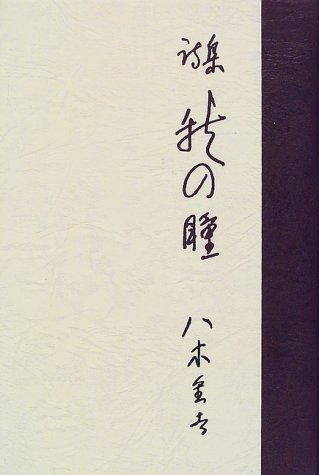 詩集
秋の瞳
八木重吉